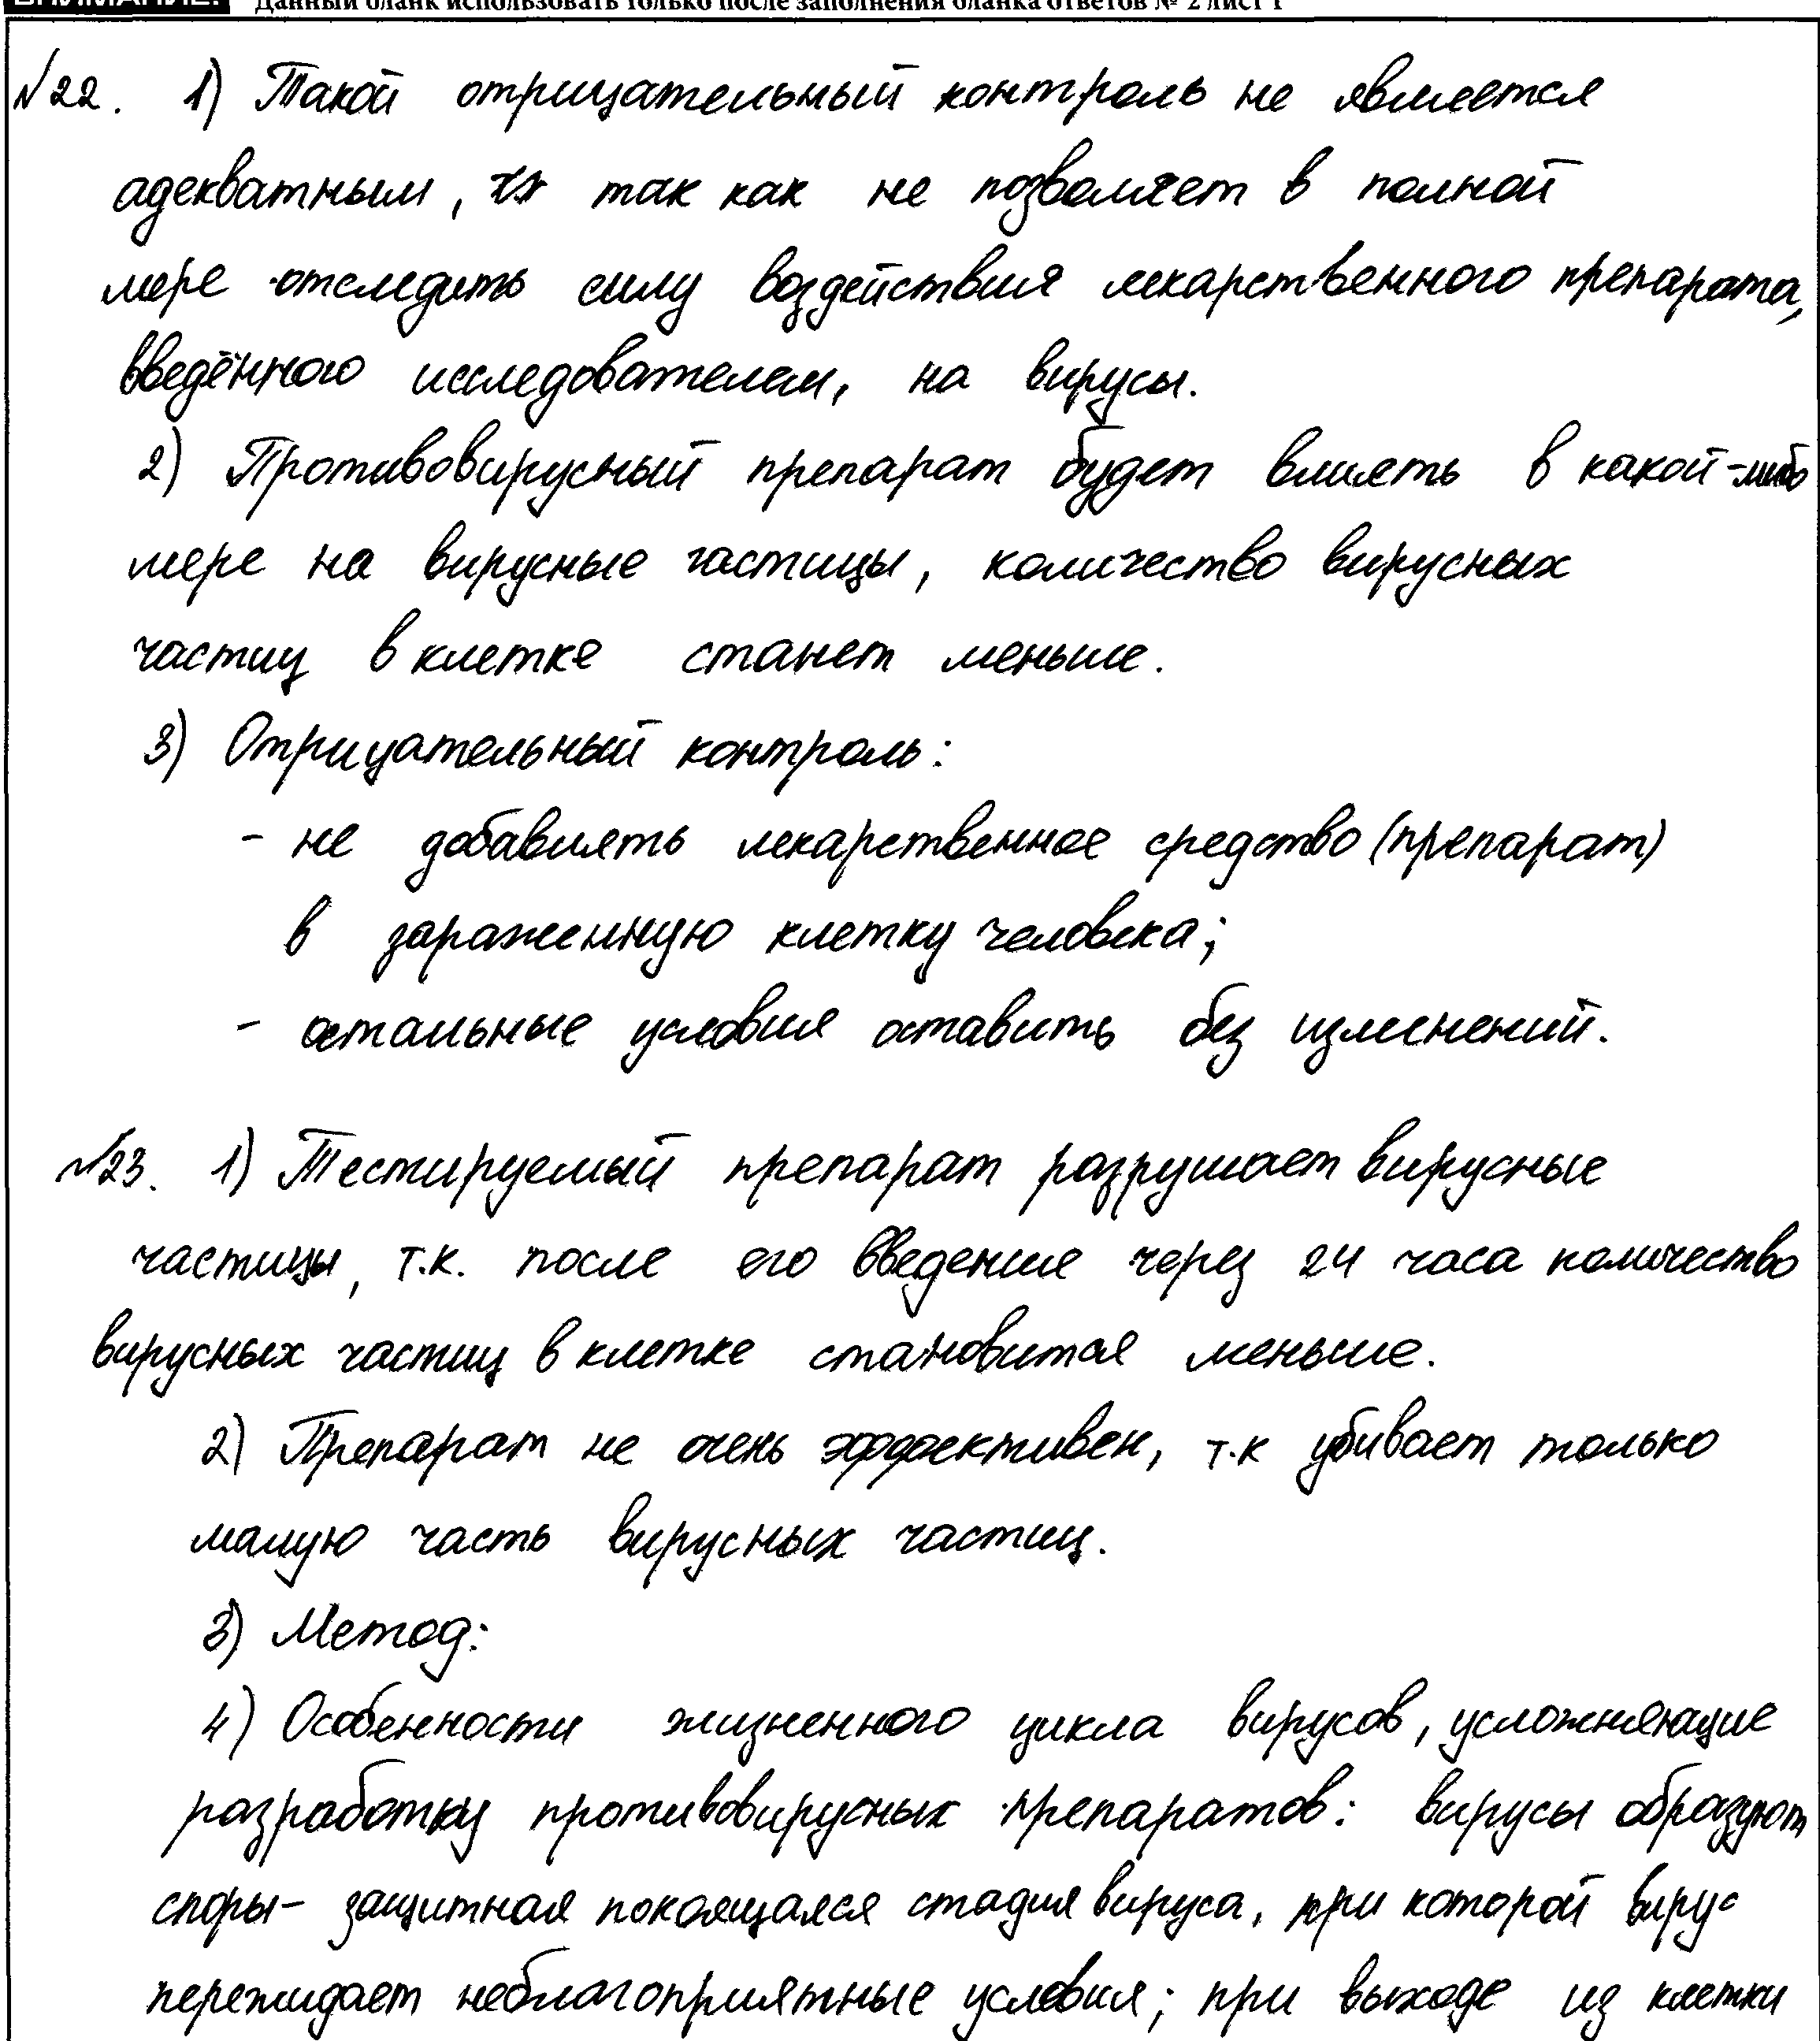 ВНИМАНИЕ! Данный бланк использовать только после заполнения бланка ответов № 2 лист 1
№22. 1) Такой отрицательный контроль не является
адекватным, так как не позволяет в полной
мере отследить силу воздействия лекарственного препарата,
введённого исследователем, на вирусы.
2) Противовирусный препарат будет влиять в какой-либо
мере на вирусные частицы, количество вирусных
частиц в клетке станет меньше.
3) Отрицательный контроль:
- не добавлять лекарственное средство (препарат)
в зараженную клетку человека;
- остальные условия оставить без изменений.
№23. 1) Тестируемый препарат разрушает вирусные
частицы, т.к. после его введение через 24 часа количество
вирусных частиц в клетке становится меньше.
2) Препарат не очень эффективен, т.к убивает только
малую часть вирусных частиц.
3) Метод:
4) Особенности жизненного цикла вирусов, усложняющие
разработку противовирусных препаратов: вирусы образуют
споры- защитная покоящаяся стадия вируса, при которой вирус
пережидает неблагоприятные условия; при выходе из клетки